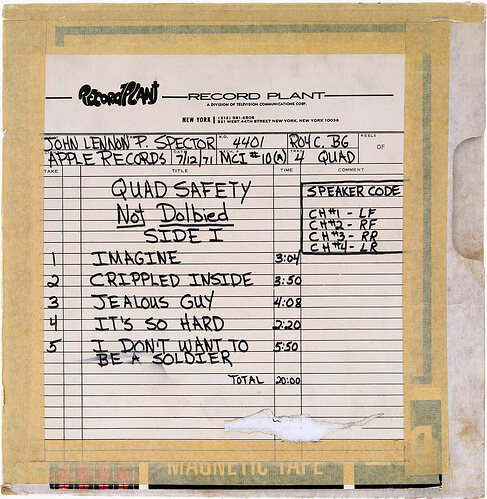 Record Plant
RECORD PLANT
A DIVISION OF TELEVISION COMMUNICATIONS CORP.
NEW YORK (212) 581-6505
321 WEST 44TH STREET NEW YORK, NEW YORK 10036
JOHN LENNON P. SPECTOR W.O. 4401 ROY C. BG REELS
APPLE RECORDS DATE 7/12/71 MCI #10(A) 4 QUAD OF
TAKE TITLE TIME COMMENT
QUAD SAFETY
Not Dolbied
SIDE I
SPEAKER CODE
CH#1 - LF
CH#2 - RF
CH#3 - RR
CH#4 - LR
1 IMAGINE 3:04
2 CRIPPLED INSIDE 3:50
3 JEALOUS GUY 4:08
4 IT'S SO HARD 2:20
5 I DON'T WANT TO 5:50
BE A SOLDIER
TOTAL 20:00
MAGNETIC TAPE